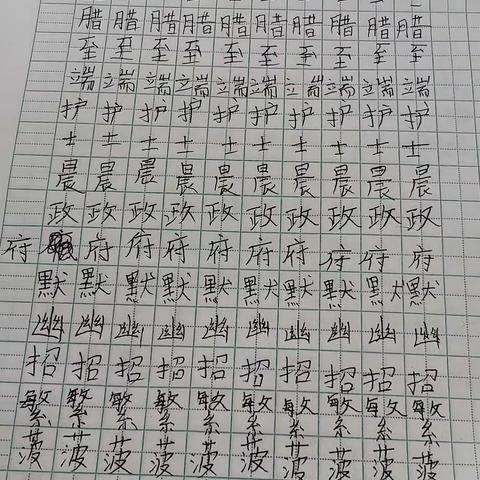 腊腊腊腊腊腊腊腊腊腊
至至至至至至至至至至
端端端端端端端端端端
护护护护护护护护护护
士士士士士士士士士士
晨晨晨晨晨晨晨晨晨晨
政政政政政政政政政政
府府府府府府府府府府
默默默默默默默默默默
幽幽幽幽幽幽幽幽幽幽
招招招招招招招招招招
繁繁繁繁繁繁繁繁繁繁
菠菠菠菠菠菠菠菠菠菠